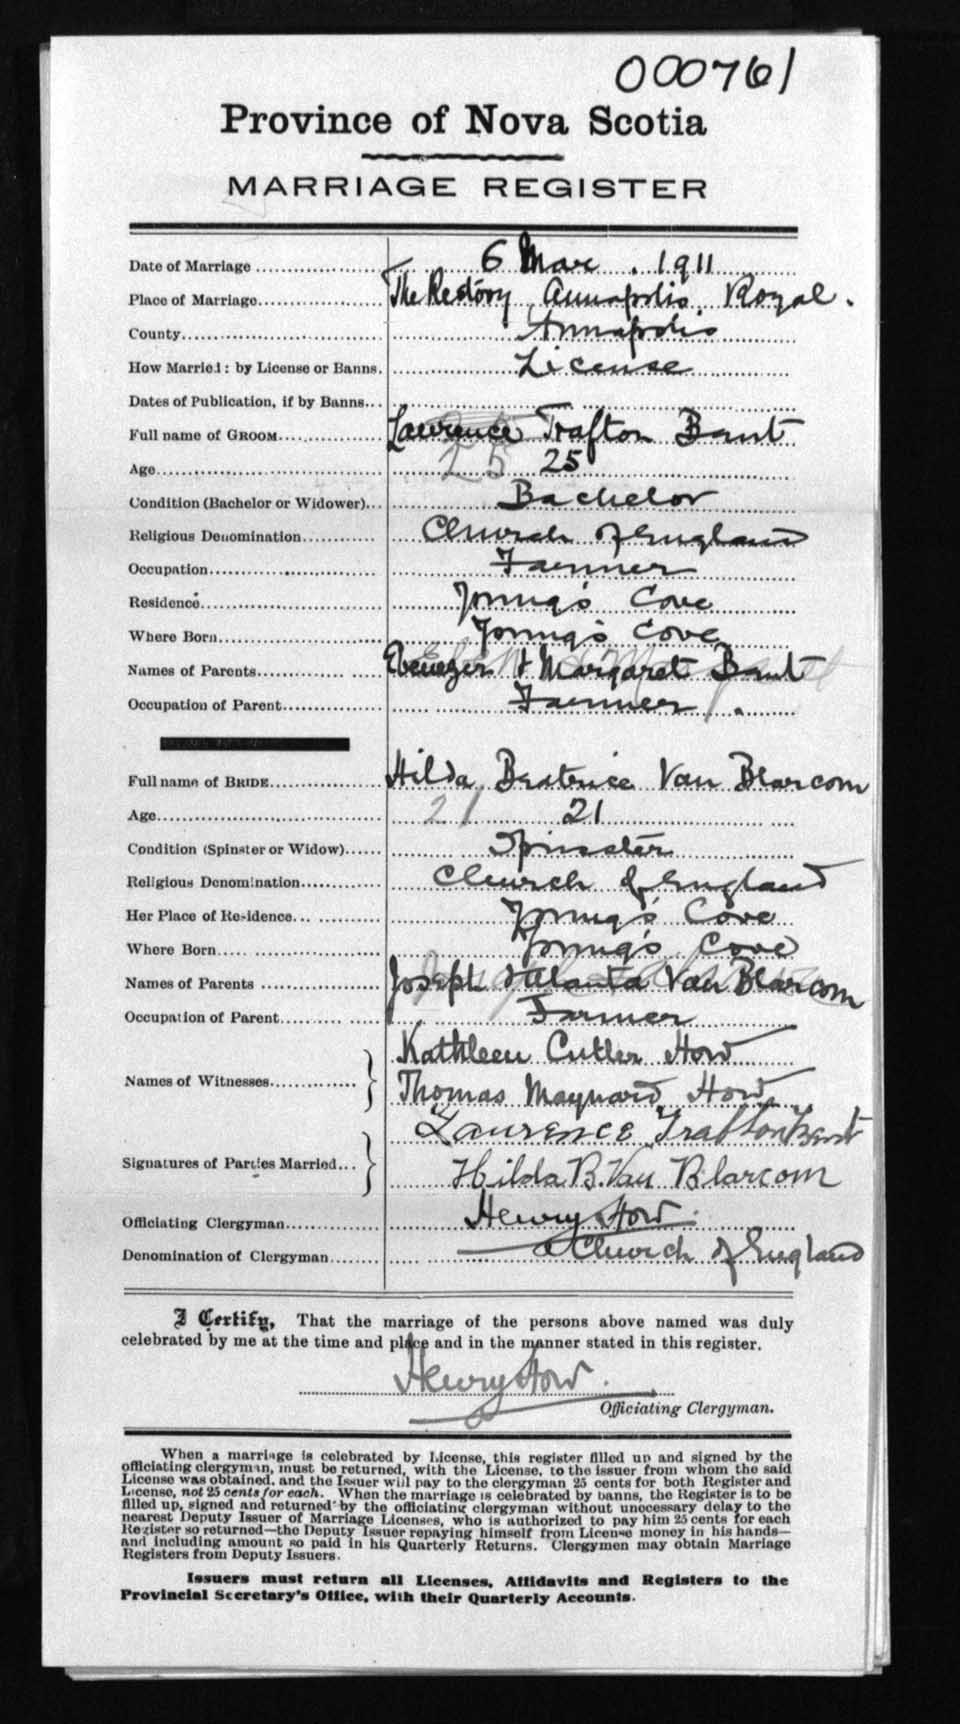 000761
Province of Nova Scotia
MARRIAGE REGISTER
Date of Marriage 6 Mar. 1911
Place of Marriage The Rectory Annapolis Royal.
County Annapolis
How Married: by License or Banns. License
Dates of Publication, if by Banns
Full name of GROOM Lawrence Trafton Bent
Age 25 25
Condition (Bachelor or Widower) Bachelor
Religious Denomination Church of England
Occupation Farmer
Residence Young's Cove
Where Born Young's Cove
Names of Parents Ebenezer & Margaret Bent
Occupation of Parent Farmer.
Full name of BRIDE Hilda Beatrice Van Blarcom
Age 21 21
Condition (Spinster or Widow) Spinster
Religious Denomination Church of England
Her Place of Residence Young's Cove
Where Born Young's Cove
Names of Parents Joseph & Van Blarcom
Occupation of Parent Farmer
Kathleen Cutler How
Names of Witnesses
Thomas Maynard How
Laurence Trafton Bent
Signatures of Parties Married
Hilda B. Van Blarcom
Officiating Clergyman Henry How.
Denomination of Clergyman Church of England
I Certify, That the marriage of the persons above named was duly
celebrated by me at the time and place and in the manner stated in this register.
Henry How.
Officiating Clergyman.
When a marriage is celebrated by License, this register filled up and signed by the
officiating clergyman, must be returned, with the License, to the issuer from whom the said
License was obtained, and the Issuer will pay to the clergyman 25 cents for both Register and
License, not 25 cents for each. When the marriage is celebrated by banns, the Register is to be
filled up, signed and returned by the officiating clergyman without unnecessary delay to the
nearest Deputy Issuer of Marriage Licenses, who is authorized to pay him 25 cents for each
Register so returned—the Deputy Issuer repaying himself from License money in his hands—
and including amount so paid in his Quarterly Returns. Clergymen may obtain Marriage
Registers from Deputy Issuers.
Issuers must return all Licenses, Affidavits and Registers to the
Provincial Secretary's Office, with their Quarterly Accounts.